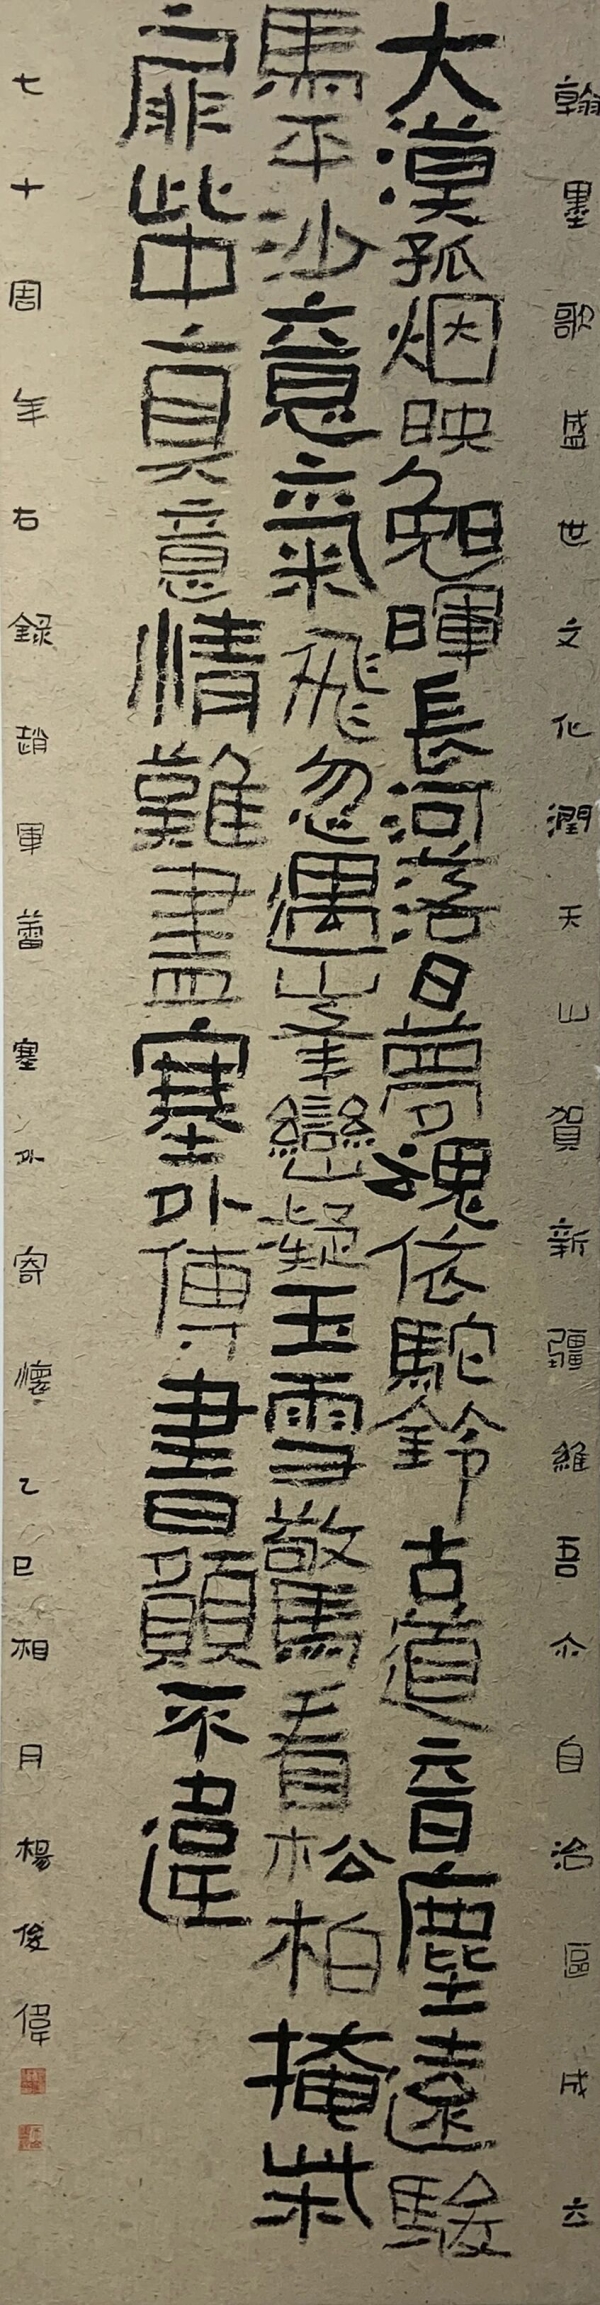 翰墨歌盛世文化潤天山賀新疆維吾尔自治區成立
大漠孤烟映晚暉長河落日夢魂依駝鈴古道音塵遠駿
馬平沙意氣飛忽遇峯巒凝玉雪驚看松柏掩柴
扉此中真意情難盡塞外傳書願不違
七十周年右錄趙軍蕾塞外寄懷乙巳相月楊俊偉